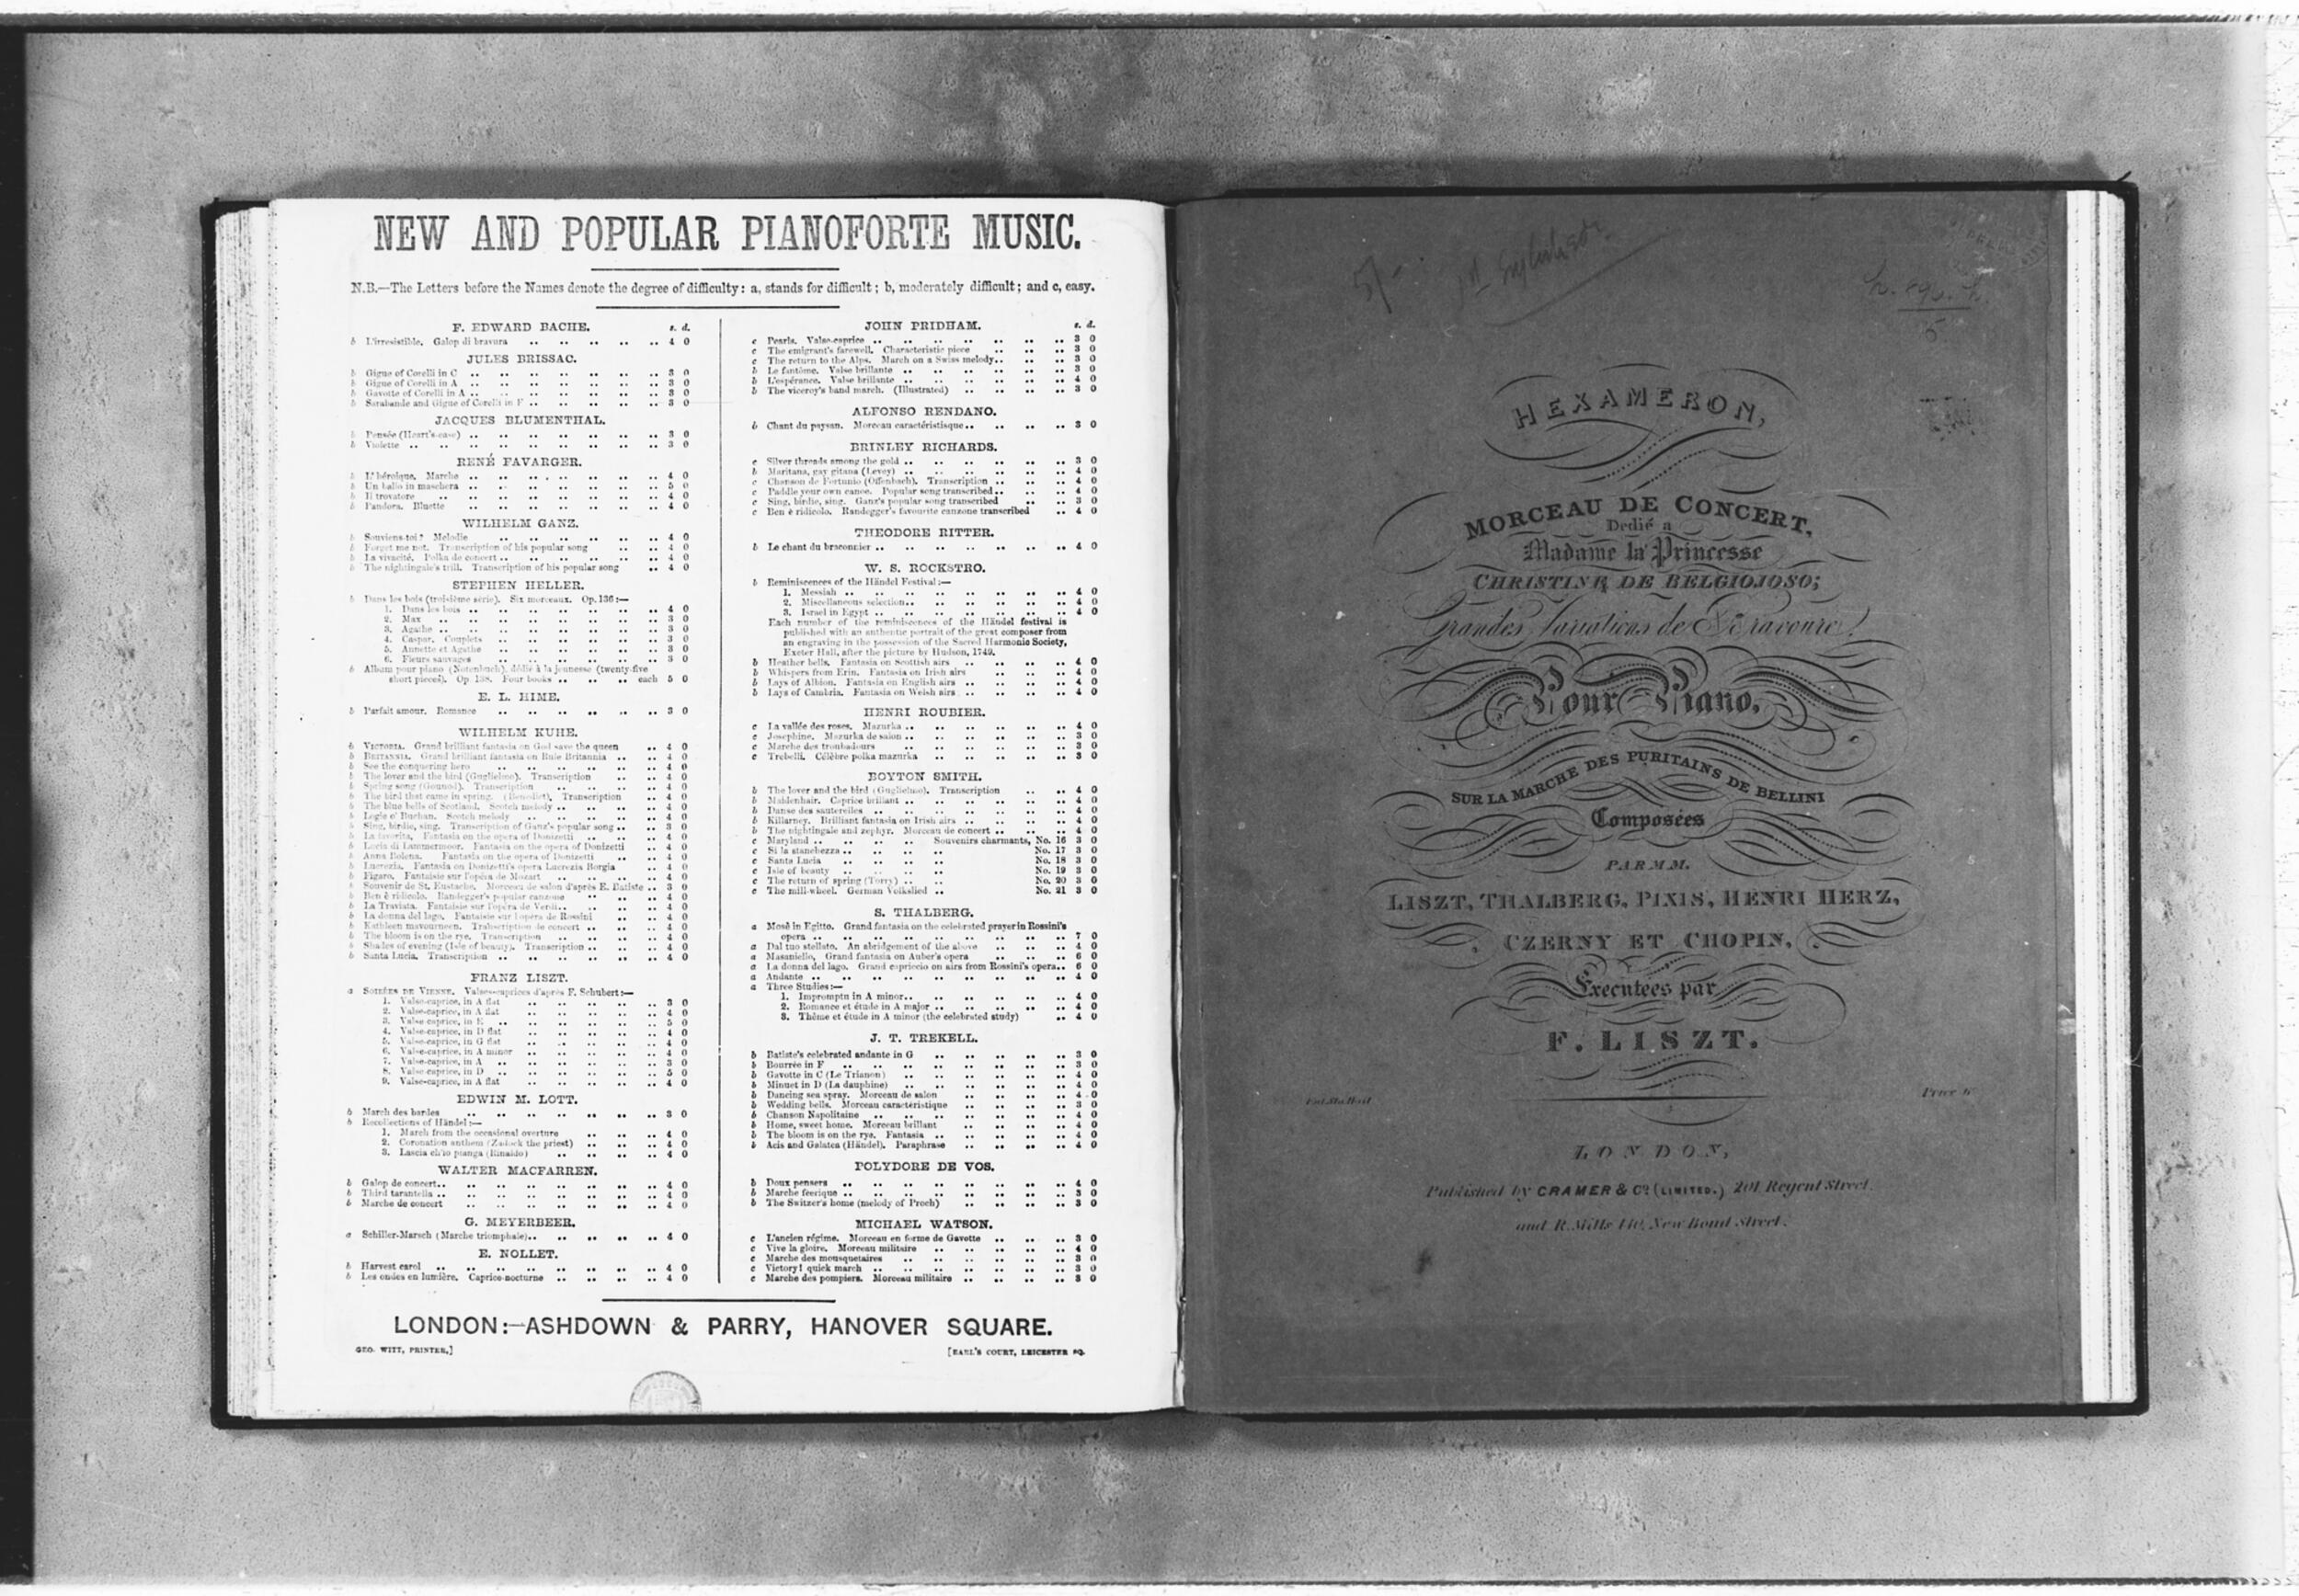 NEW AND POPULAR PIANOFORTE MUSIC.
N.B.—The Letters before the Names denote the degree of difficulty: a, stands for difficult; b, moderately difficult; and c, easy.
F. EDWARD BACHE. s. d.
b L'irresistible. Galop di bravura .. .. .. .. .. 4 0
JULES BRISSAC.
b Gigue of Corelli in C .. .. .. .. .. .. .. 3 0
b Gigue of Corelli in A .. .. .. .. .. .. .. 3 0
b Gavotte of Corelli in A .. .. .. .. .. .. .. 3 0
b Sarabande and Gigue of Corelli in F .. .. .. .. .. 3 0
JACQUES BLUMENTHAL.
b Pensée (Heart's-ease) .. .. .. .. .. .. .. 3 0
b Violette .. .. .. .. .. .. .. .. .. 3 0
RENÉ FAVARGER.
b L'héroique. Marche .. .. .. .. .. .. .. 4 0
b Un ballo in maschera .. .. .. .. .. .. .. 5 0
b Il trovatore .. .. .. .. .. .. .. .. 4 0
b Pandora. Bluette .. .. .. .. .. .. 4 0
WILHELM GANZ.
b Souviens-toi? Melodie .. .. .. .. .. .. 4 0
b Forget me not. Transcription of his popular song .. .. 4 0
b La vivacité. Polka de concert .. .. .. .. .. .. 4 0
b The nightingale's trill. Transcription of his popular song .. 4 0
STEPHEN HELLER.
b Dans les bois (troisième série). Six morceaux. Op. 136:—
1. Dans les bois .. .. .. .. .. .. .. 4 0
2. Max .. .. .. .. .. .. .. 3 0
3. Agathe .. .. .. .. .. .. .. 3 0
4. Caspar. Couplets .. .. .. .. .. .. 3 0
5. Annette et Agathe .. .. .. .. .. .. 3 0
6. Fleurs sauvages .. .. .. .. .. .. 3 0
b Album pour piano (Notenbuch), dédié à la jeunesse (twenty-five
short pieces). Op. 138. Four books .. .. .. each 5 0
E. L. HIME.
b Parfait amour. Romance .. .. .. .. .. .. 3 0
WILHELM KUHE.
b VICTORIA. Grand brilliant fantasia on God save the queen .. 4 0
b BRITANNIA. Grand brilliant fantasia on Rule Britannia .. .. 4 0
b See the conquering hero .. .. .. .. .. .. 4 0
b The lover and the bird (Guglielmo). Transcription .. .. 4 0
b Spring song (Gounod). Transcription .. .. .. .. 4 0
b The bird that came in spring. (Benedict), Transcription .. 4 0
b The blue bells of Scotland. Scotch melody .. .. .. .. 4 0
b Logie o' Buchan. Scotch melody .. .. .. .. .. 4 0
b Sing, birdie, sing. Transcription of Ganz's popular song .. .. 3 0
b La favorita, Fantasia on the opera of Donizetti .. .. .. 4 0
b Lucia di Lammermoor. Fantasia on the opera of Donizetti .. 4 0
b Anna Bolena. Fantasia on the opera of Donizetti .. .. 4 0
b Lucrezia. Fantasia on Donizetti's opera Lucrezia Borgia .. 4 0
b Figaro. Fantaisie sur l'opéra de Mozart .. .. .. .. 4 0
b Souvenir de St. Eustache. Morceau de salon d'après E. Batiste .. 3 0
b Ben è ridicolo. Randegger's popular canzone .. .. .. 4 0
b La Traviata. Fantaisie sur l'opéra de Verdi .. .. .. .. 4 0
b La donna del lago. Fantaisie sur l'opéra de Rossini .. .. 4 0
b Kathleen mavourneen. Transcription de concert .. .. .. 4 0
b The bloom is on the rye. Transcription .. .. .. .. 4 0
b Shades of evening (Isle of beauty). Transcription .. .. .. 4 0
b Santa Lucia. Transcription .. .. .. .. .. .. 4 0
FRANZ LISZT.
a SOIRÉES DE VIENNE. Valses-caprices d'après F. Schubert:—
1. Valse-caprice, in A flat .. .. .. .. .. 3 0
2. Valse-caprice, in A flat .. .. .. .. .. 4 0
3. Valse-caprice, in E .. .. .. .. .. .. 5 0
4. Valse-caprice, in D flat .. .. .. .. .. 4 0
5. Valse-caprice, in G flat .. .. .. .. .. 4 0
6. Valse-caprice, in A minor .. .. .. .. .. 4 0
7. Valse-caprice, in A .. .. .. .. .. .. 3 0
8. Valse-caprice, in D .. .. .. .. .. .. 5 0
9. Valse-caprice, in A flat .. .. .. .. .. 4 0
EDWIN M. LOTT.
b March des bardes .. .. .. .. .. .. .. 3 0
b Recollections of Händel:—
1. March from the occasional overture .. .. .. 4 0
2. Coronation anthem (Zadock the priest) .. .. .. 4 0
3. Lascia ch'io pianga (Rinaldo) .. .. .. .. 4 0
WALTER MACFARREN.
b Galop de concert .. .. .. .. .. .. .. .. 4 0
b Third tarantella .. .. .. .. .. .. .. .. 4 0
b Marche de concert .. .. .. .. .. .. .. 4 0
G. MEYERBEER.
a Schiller-Marsch (Marche triomphale) .. .. .. .. .. 4 0
E. NOLLET.
b Harvest carol .. .. .. .. .. .. .. .. 4 0
b Les ondes en lumière. Caprice-nocturne .. .. .. .. 4 0
JOHN PRIDHAM. s. d.
c Pearls. Valse-caprice .. .. .. .. .. .. .. 3 0
c The emigrant's farewell. Characteristic piece .. .. .. 3 0
c The return to the Alps. March on a Swiss melody .. .. .. 3 0
b Le fantôme. Valse brillante .. .. .. .. .. .. 3 0
b L'espérance. Valse brillante .. .. .. .. .. .. 4 0
b The viceroy's band march. (Illustrated) .. .. .. .. 3 0
ALFONSO RENDANO.
b Chant du paysan. Morceau caractéristique .. .. .. .. 3 0
BRINLEY RICHARDS.
c Silver threads among the gold .. .. .. .. .. .. 3 0
b Maritana, gay gitana (Levey) .. .. .. .. .. .. 4 0
c Chanson de Fortunio (Offenbach). Transcription .. .. .. 4 0
c Paddle your own canoe. Popular song transcribed .. .. .. 4 0
c Sing, birdie, sing. Ganz's popular song transcribed .. .. 3 0
c Ben è ridicolo. Randegger's favourite canzone transcribed .. 4 0
THEODORE RITTER.
b Le chant du braconnier .. .. .. .. .. .. .. 4 0
W. S. ROCKSTRO.
b Reminiscences of the Händel Festival:—
1. Messiah .. .. .. .. .. .. .. .. 4 0
2. Miscellaneous selection .. .. .. .. .. .. 4 0
3. Israel in Egypt .. .. .. .. .. .. .. 4 0
Each number of the reminiscences of the Händel festival is
published with an authentic portrait of the great composer from
an engraving in the possession of the Sacred Harmonic Society,
Exeter Hall, after the picture by Hudson, 1749.
b Heather bells. Fantasia on Scottish airs .. .. .. .. 4 0
b Whispers from Erin. Fantasia on Irish airs .. .. .. 4 0
b Lays of Albion. Fantasia on English airs .. .. .. .. 4 0
b Lays of Cambria. Fantasia on Welsh airs .. .. .. .. 4 0
HENRI ROUBIER.
c La vallée des roses. Mazurka .. .. .. .. .. .. 4 0
c Josephine. Mazurka de salon .. .. .. .. .. .. 3 0
c Marche des troubadours .. .. .. .. .. .. 3 0
c Trebelli. Célèbre polka mazurka .. .. .. .. .. 3 0
BOYTON SMITH.
b The lover and the bird (Guglielmo). Transcription .. .. 4 0
b Maidenhair. Caprice brillant .. .. .. .. .. .. 4 0
b Danse des sauterelles .. .. .. .. .. .. .. 4 0
b Killarney. Brilliant fantasia on Irish airs .. .. .. .. 4 0
b The nightingale and zephyr. Morceau de concert .. .. .. 4 0
c Maryland .. .. .. .. .. Souvenirs charmants, No. 16 3 0
c Si la stanchezza .. .. .. .. .. No. 17 3 0
c Santa Lucia .. .. .. .. No. 18 3 0
c Isle of beauty .. .. .. .. No. 19 3 0
c The return of spring (Torry) .. .. No. 20 3 0
c The mill-wheel. German Volkslied .. .. No. 21 3 0
S. THALBERG.
a Mosè in Egitto. Grand fantasia on the celebrated prayer in Rossini's
opera .. .. .. .. .. .. .. .. .. 7 0
a Dal tuo stellato. An abridgement of the above .. .. .. 4 0
a Masaniello, Grand fantasia on Auber's opera .. .. .. 6 0
a La donna del lago. Grand capriccio on airs from Rossini's opera .. 6 0
a Andante .. .. .. .. .. .. .. .. .. 4 0
a Three Studies:—
1. Impromptu in A minor .. .. .. .. .. .. 4 0
2. Romance et étude in A major .. .. .. .. .. 4 0
3. Thème et étude in A minor (the celebrated study) .. 4 0
J. T. TREKELL.
b Batiste's celebrated andante in G .. .. .. .. .. 3 0
b Bourrée in F .. .. .. .. .. .. .. .. 3 0
b Gavotte in C (Le Trianon) .. .. .. .. .. .. 4 0
b Minuet in D (La dauphine) .. .. .. .. .. .. 4 0
b Dancing sea spray. Morceau de salon .. .. .. .. 4 0
b Wedding bells. Morceau caractéristique .. .. .. .. 3 0
b Chanson Napolitaine .. .. .. .. .. .. .. 4 0
b Home, sweet home. Morceau brillant .. .. .. .. 4 0
b The bloom is on the rye. Fantasia .. .. .. .. .. 4 0
b Acis and Galatea (Händel). Paraphrase .. .. .. .. 4 0
POLYDORE DE VOS.
b Doux pensers .. .. .. .. .. .. .. .. 4 0
b Marche féerique .. .. .. .. .. .. .. .. 3 0
b The Switzer's home (melody of Proch) .. .. .. .. 3 0
MICHAEL WATSON.
c L'ancien régime. Morceau en forme de Gavotte .. .. .. 3 0
c Vive la gloire. Morceau militaire .. .. .. .. .. 4 0
c Marche des mousquetaires .. .. .. .. .. .. 3 0
c Victory! quick march .. .. .. .. .. .. .. 3 0
c Marche des pompiers. Morceau militaire .. .. .. .. 3 0
LONDON:—ASHDOWN & PARRY, HANOVER SQUARE.
GEO. WITT, PRINTER,] [EARL'S COURT, LEICESTER SQ.
5/-
5
HEXAMERON,
MORCEAU DE CONCERT,
Dedié a
Madame la Princesse
CHRISTINE DE BELGIOJOSO;
Grandes Variations de Bravoure
Pour Piano,
SUR LA MARCHE DES PURITAINS DE BELLINI
Composées
PAR MM.
LISZT, THALBERG, PIXIS, HENRI HERZ,
CZERNY ET CHOPIN,
Executées par
F. LISZT.
Ent. Sta. Hall Price 6/
LONDON,
Published by CRAMER & Co. (LIMITED.) 201 Regent Street.
and R. Mills 140, New Bond Street.